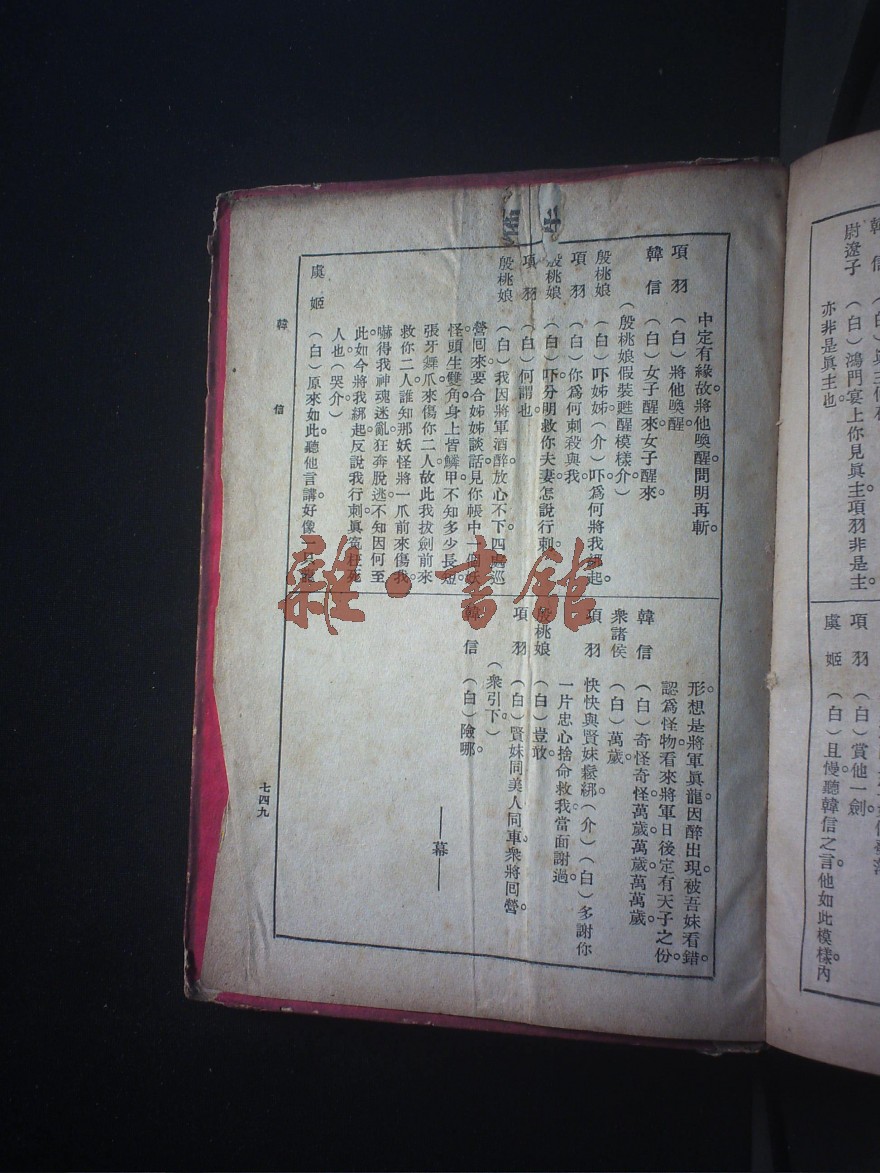 韓信
尉遼子
（白）鴻門宴上你見眞主項羽非是主
亦非是眞主也。
項羽
（白）賞他一劍。
虞姬
（白）且慢聽韓信之言。他如此模樣內
中定有緣故。將他喚醒問明再斬。
項羽
（白）將他喚醒。
韓信
（白）女子醒來女子醒來。
（殷桃娘假裝甦醒模樣介）
殷桃娘
（白）吓姊姊（介）吓爲何將我綁起。
項羽
（白）你爲何刺殺與我。
殷桃娘
（白）吓分明救你夫妻怎說行刺。
項羽
（白）何謂也。
殷桃娘
（白）我因將軍酒醉放心不下。四處巡
營回來要合姊姊談話。見你帳中一個妖
怪頭生雙角身上皆鱗甲。不知多少長短。
張牙舞爪來傷你二人。故此我拔劍前來
救你二人。誰知那妖怪將一爪前來傷我。
嚇得我神魂迷亂狂奔脫逃。不知因何至
此。如今將我綁起反說我行刺眞寃枉死
人也。（哭介）
虞姬
（白）原來如此。聽他言講好像一
形。想是將軍眞龍因醉出現。被吾妹看錯。
認爲怪物。看來將軍日後定有天子之份。
韓信
（白）奇怪奇怪萬歲。萬歲。萬萬歲。
衆諸侯
（白）萬歲。
項羽
快快與賢妹鬆綁（介）（白）多謝你
一片忠心捨命救我。當面謝過。
殷桃娘
（白）豈敢。
項羽
（白）賢妹同美人同車。衆將回營。
（衆引下）
韓信
（白）險哪。
——幕——
韓信
七四九
雜·書館